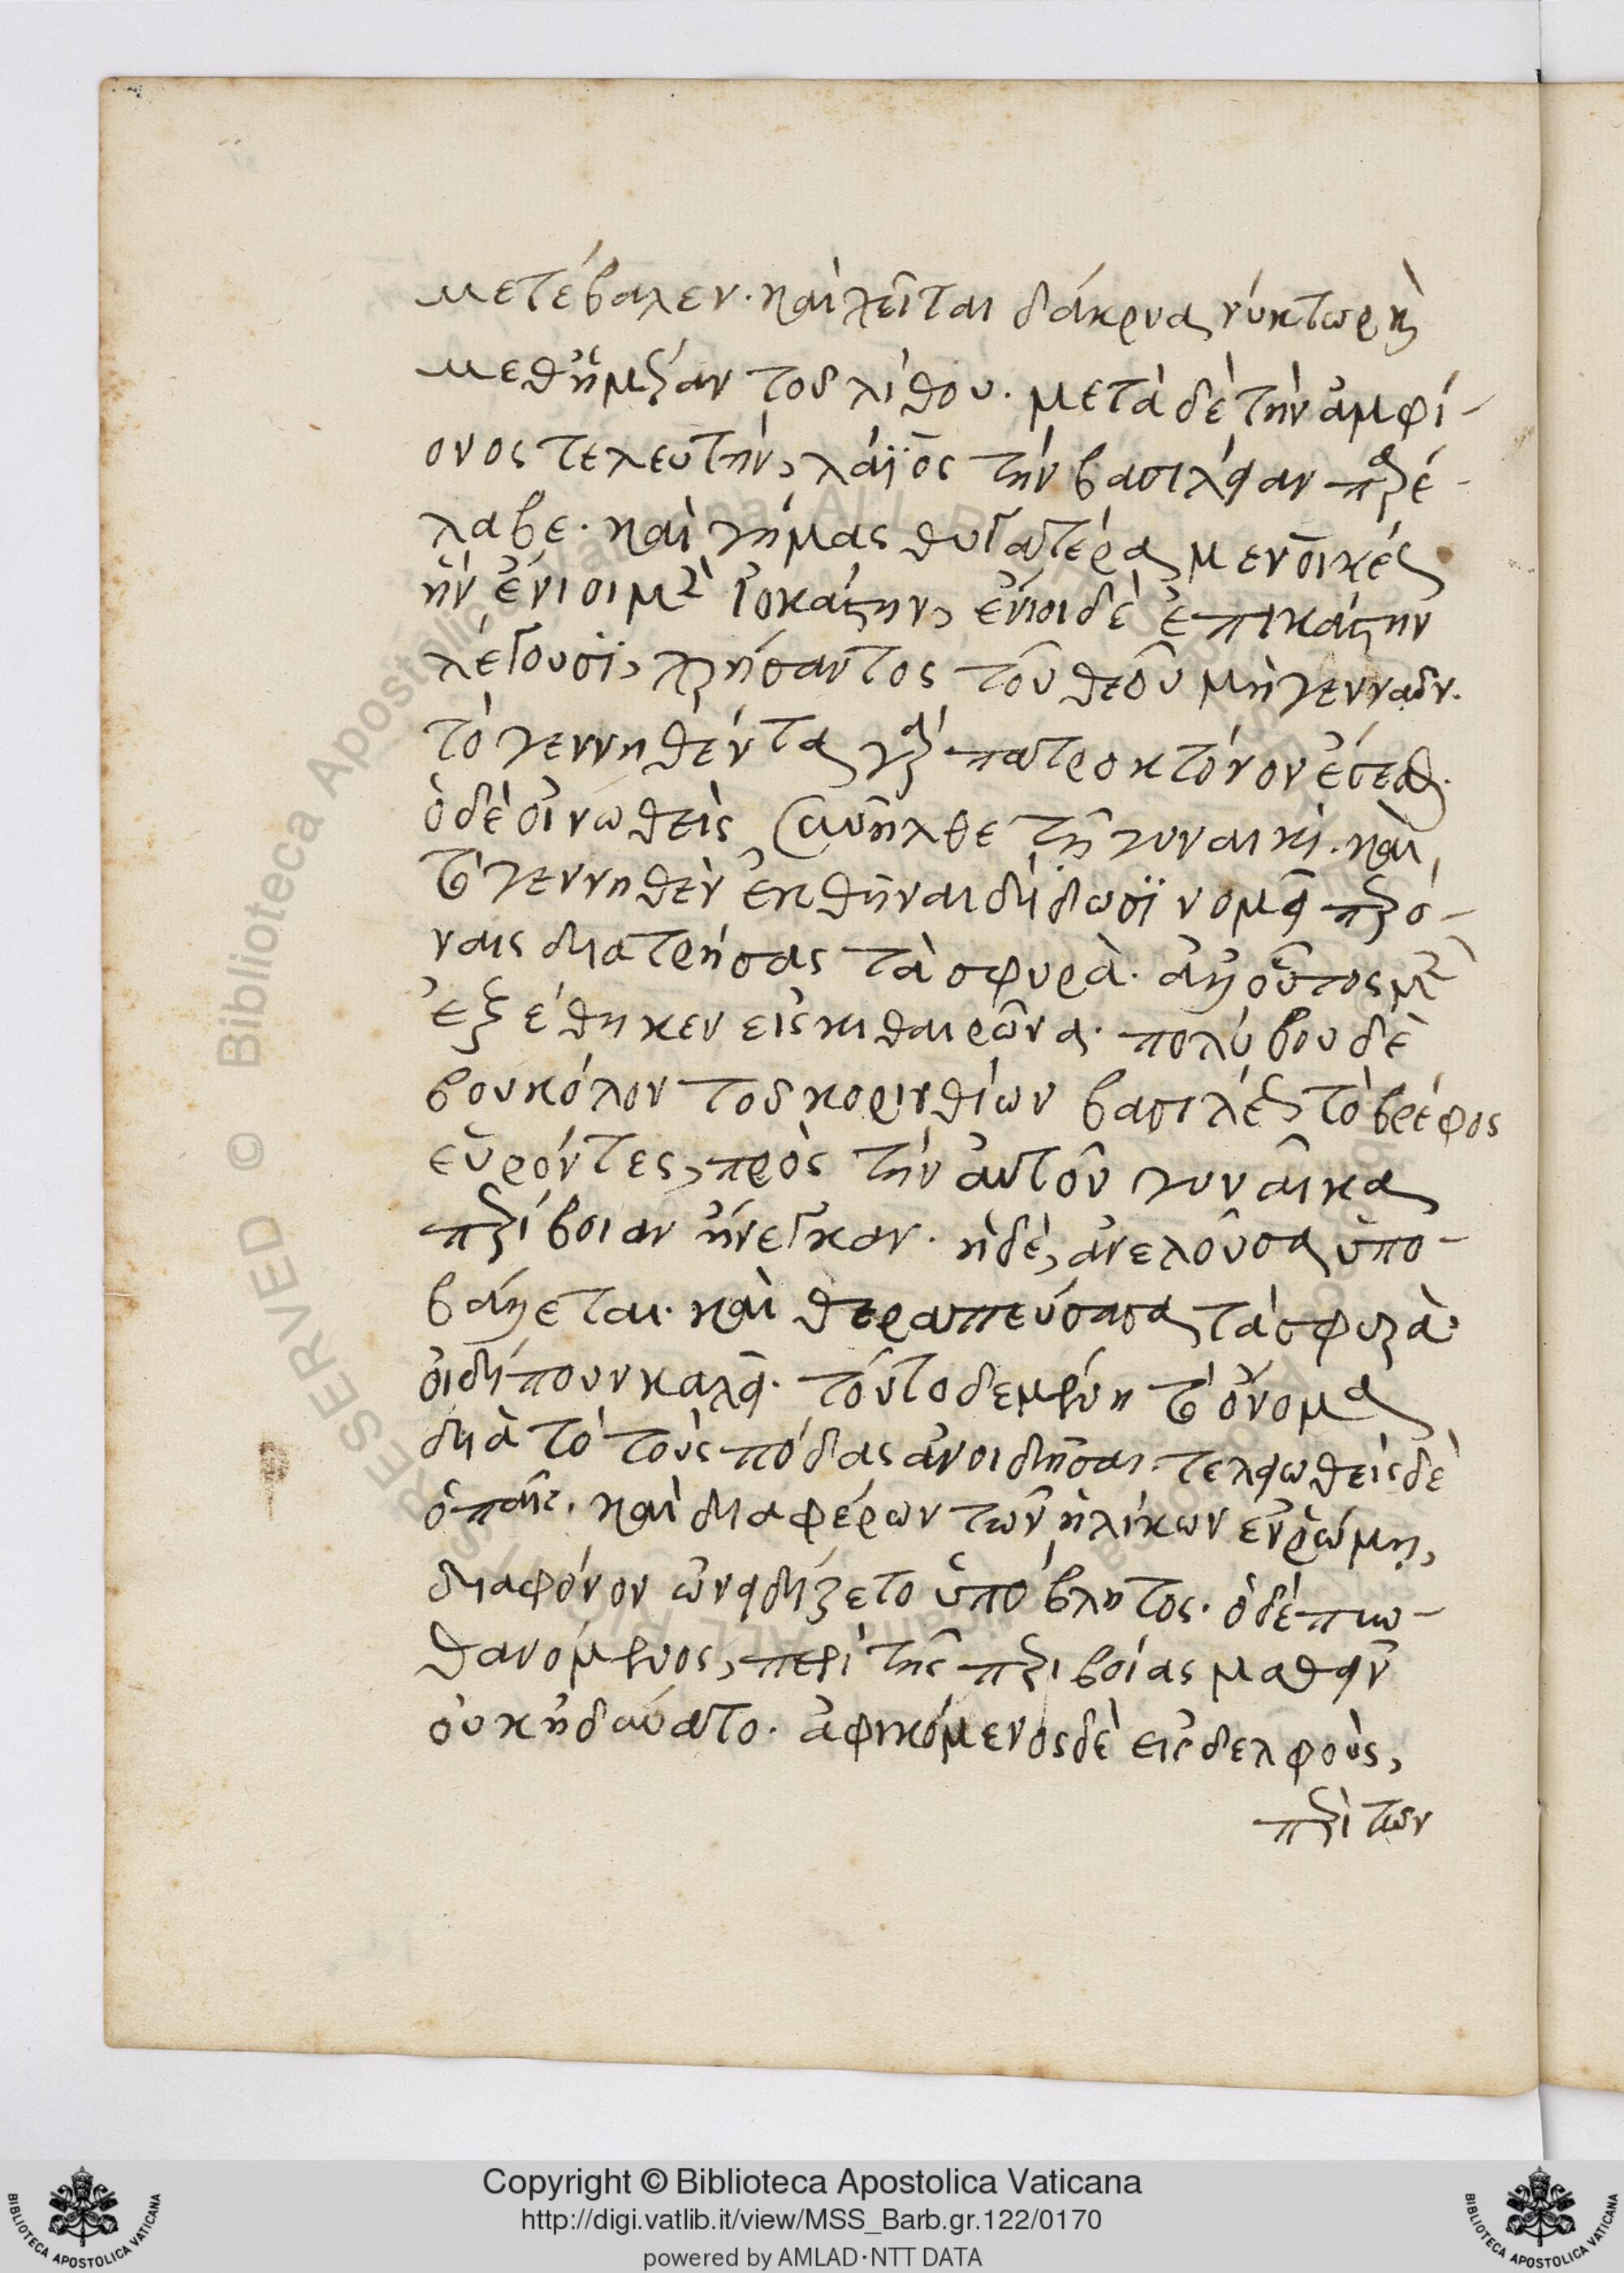 μετέβαλεν· καὶ χεῖται δάκρυα νύκτωρ κὶ
μεθ' ἡμέραν τοῦ λίθου· μετὰ δὲ τὴν ἀμφί-
ονος τελευτὴν, λάϊος τὴν βασιλείαν παρέ-
λαβε· καὶ γήμας θυγατέρα μενοικέως
ἣν ἔνιοι μὲν ἰοκάστην, ἔνιοι δὲ ἐπικάστην
λέγουσϊ, χρήσαντος τοῦ θεοῦ μὴ γεννᾶν·
τὸ γεννηθέντα γὰρ πατροκτόνον ἔσεσθαι·
ὁ δὲ οἰνωθεὶς συνῆλθε τῇ γυναικί· καὶ
τὸ γεννηθὲν ἐκθῆναι δίδωσϊ νομεῖ περό-
ναις διατρήσας τὰ σφυρὰ· ἀλλ' οὗτος μὲν
ἐξέθηκεν εἰς κιθαιρῶνα· πολύβου δὲ
βουκόλον τοῦ κορινθίων βασιλέως τὸ βρέφος
εὑρόντες, πρὸς τὴν αὐτοῦ γυναῖκα
περίβοιαν ἤνεγκαν· ἡ δὲ, ἀνελοῦσα ὑπο-
βάλλεται· καὶ θεραπεύσασα τὰ σφυρὰ·
οἰδίπουν καλεῖ· τοῦτο δεμένη τὸ ὄνομα
διὰ τὸ τοὺς πόδας ἀνοιδῆσαι· τελειωθεὶς δὲ
ὁ παῖς· καὶ διαφέρων τῶν ἡλίκων ἐν ῥώμῃ,
διαφόνον ὠνειδίζετο ὑπόβλητος· ὁ δὲ πω-
θανόμενος, περὶ τῆς περιβοίας μαθεῖν
οὐκ ἠδύνατο· ἀφικόμενος δὲ εἰς δελφοὺς,
περὶ των
Copyright © Biblioteca Apostolica Vaticana
http://digi.vatlib.it/view/MSS_Barb.gr.122/0170
powered by AMLAD·NTT DATA